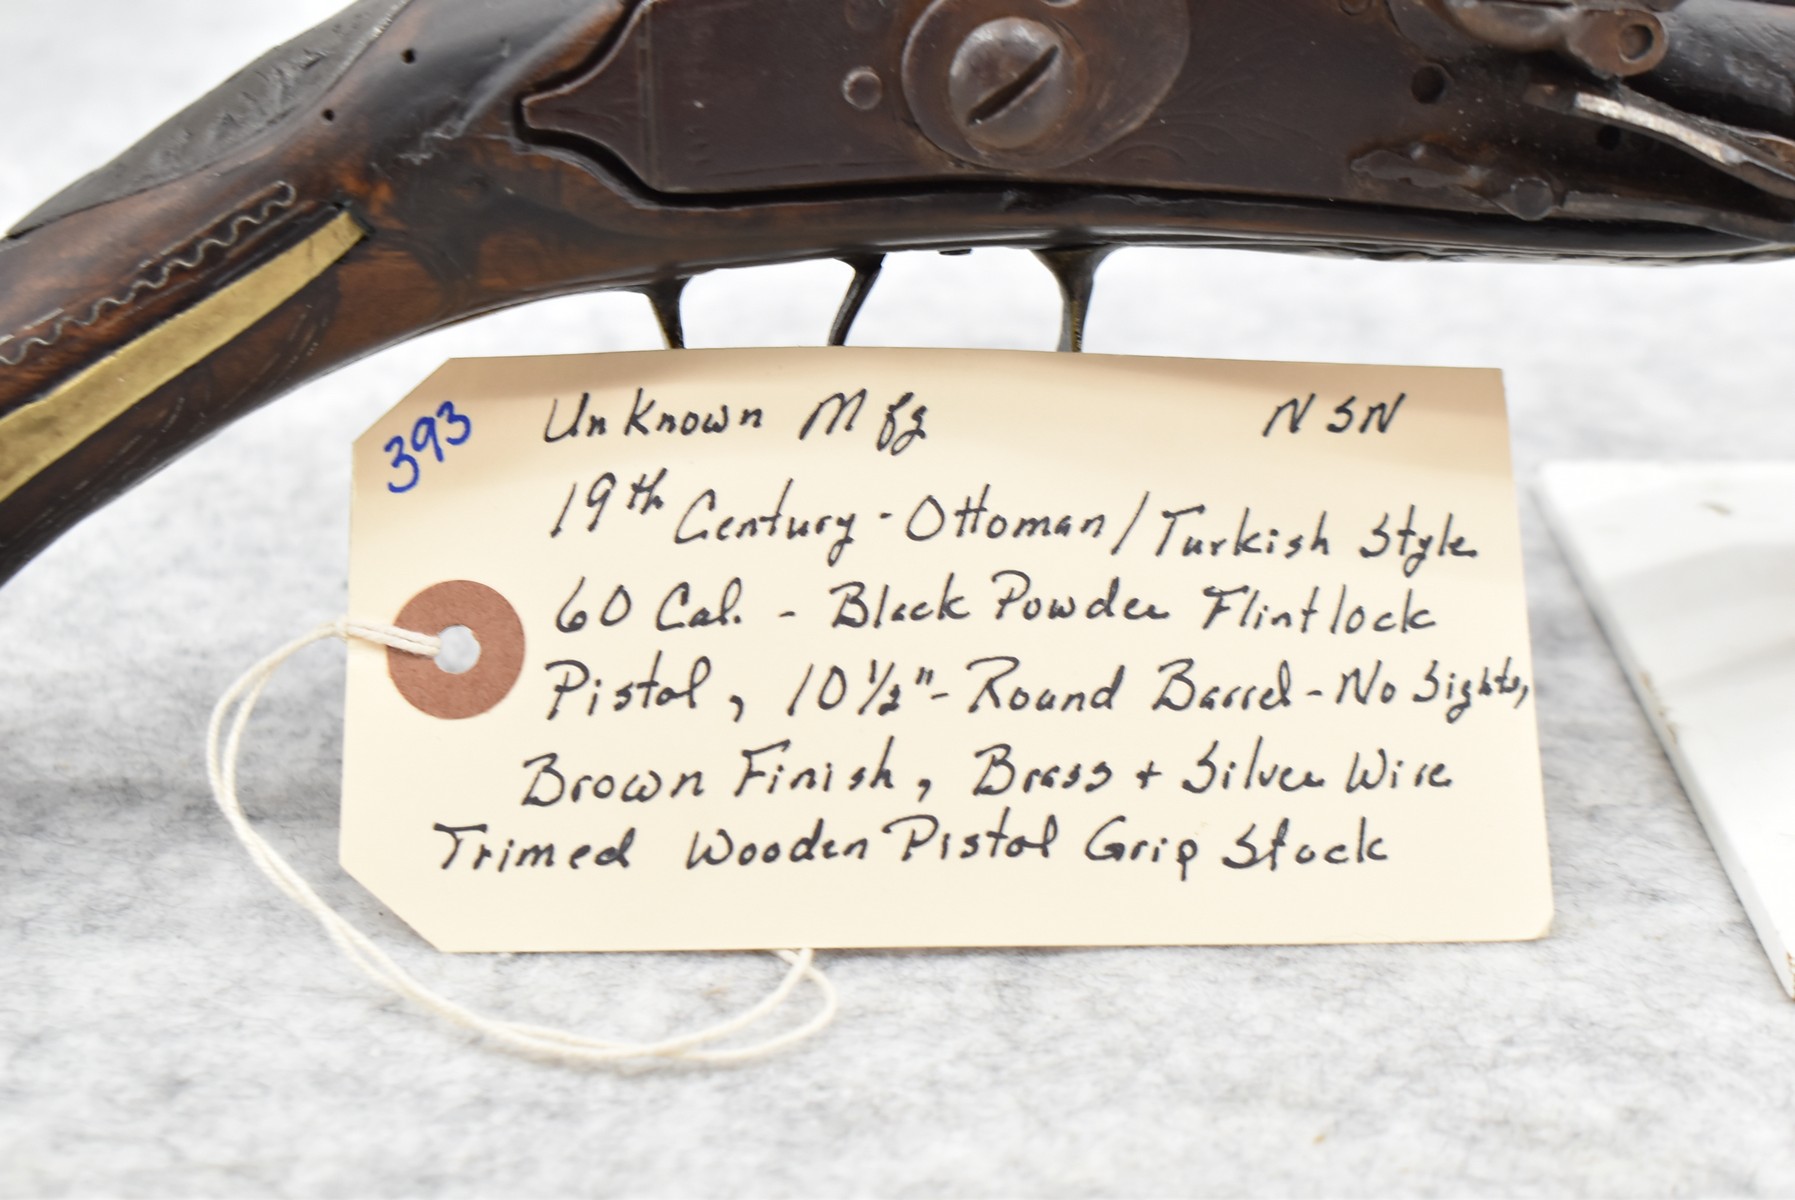 393
Unknown Mfg NSN
19th Century - Ottoman/Turkish Style
60 Cal. - Black Powder Flintlock
Pistol, 10 1/2" - Round Barrel - No Sights,
Brown Finish, Brass + Silver Wire
Trimed Wooden Pistol Grip Stock